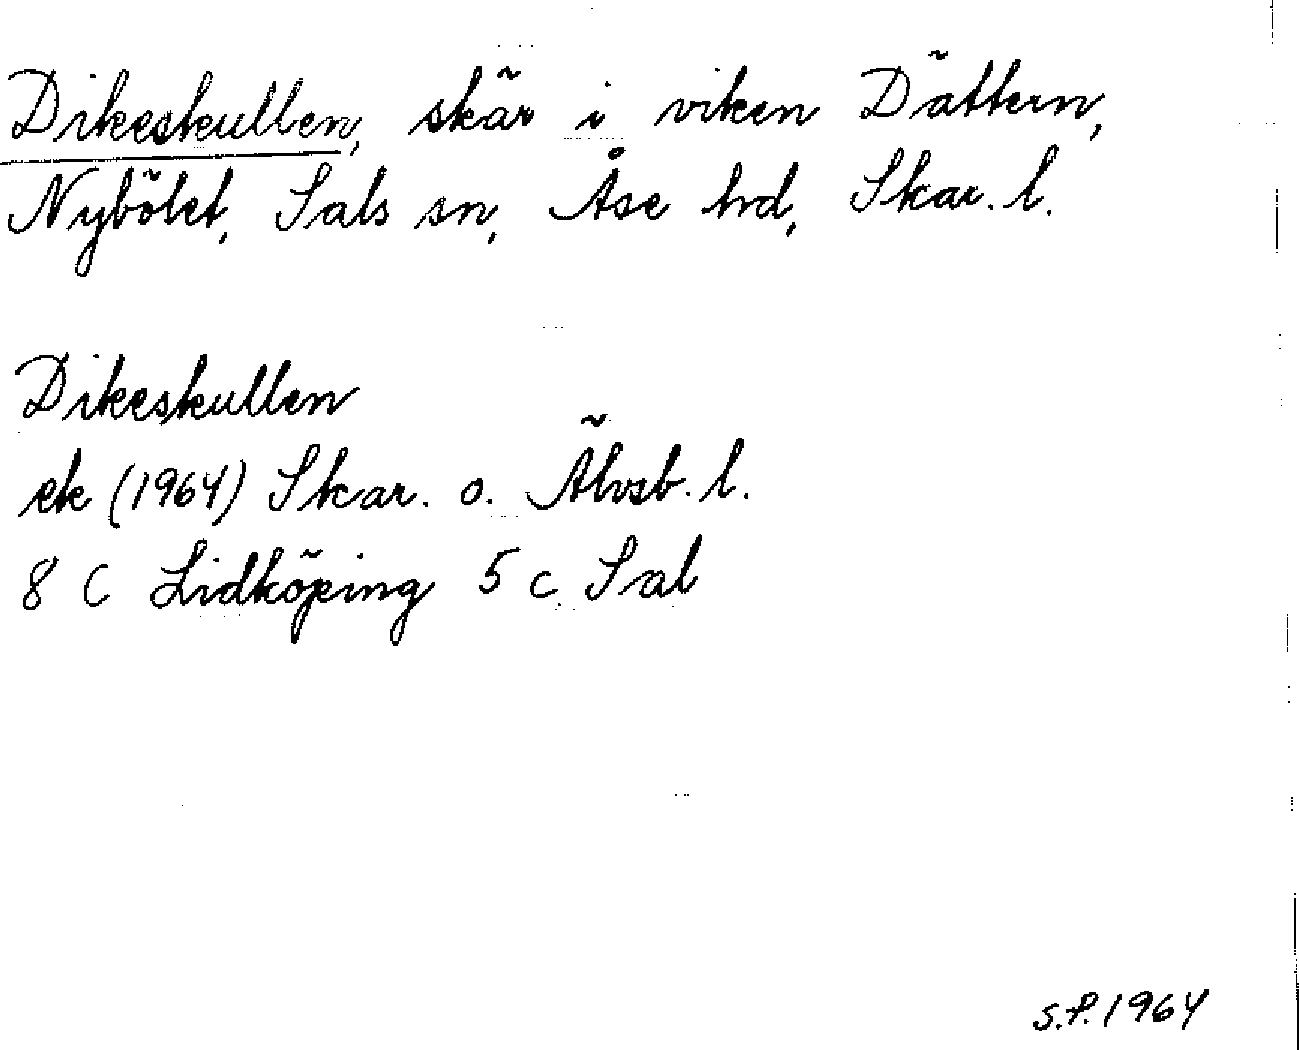 Dikeskullen, skär i viken Dättern,
Nybölet, Sals sn, Åse hrd, Skar. l.
Dikeskullen
ek (1964) Skar. o. Älvsb. l.
8 C Lidköping 5 c Sal
S.P. 1964